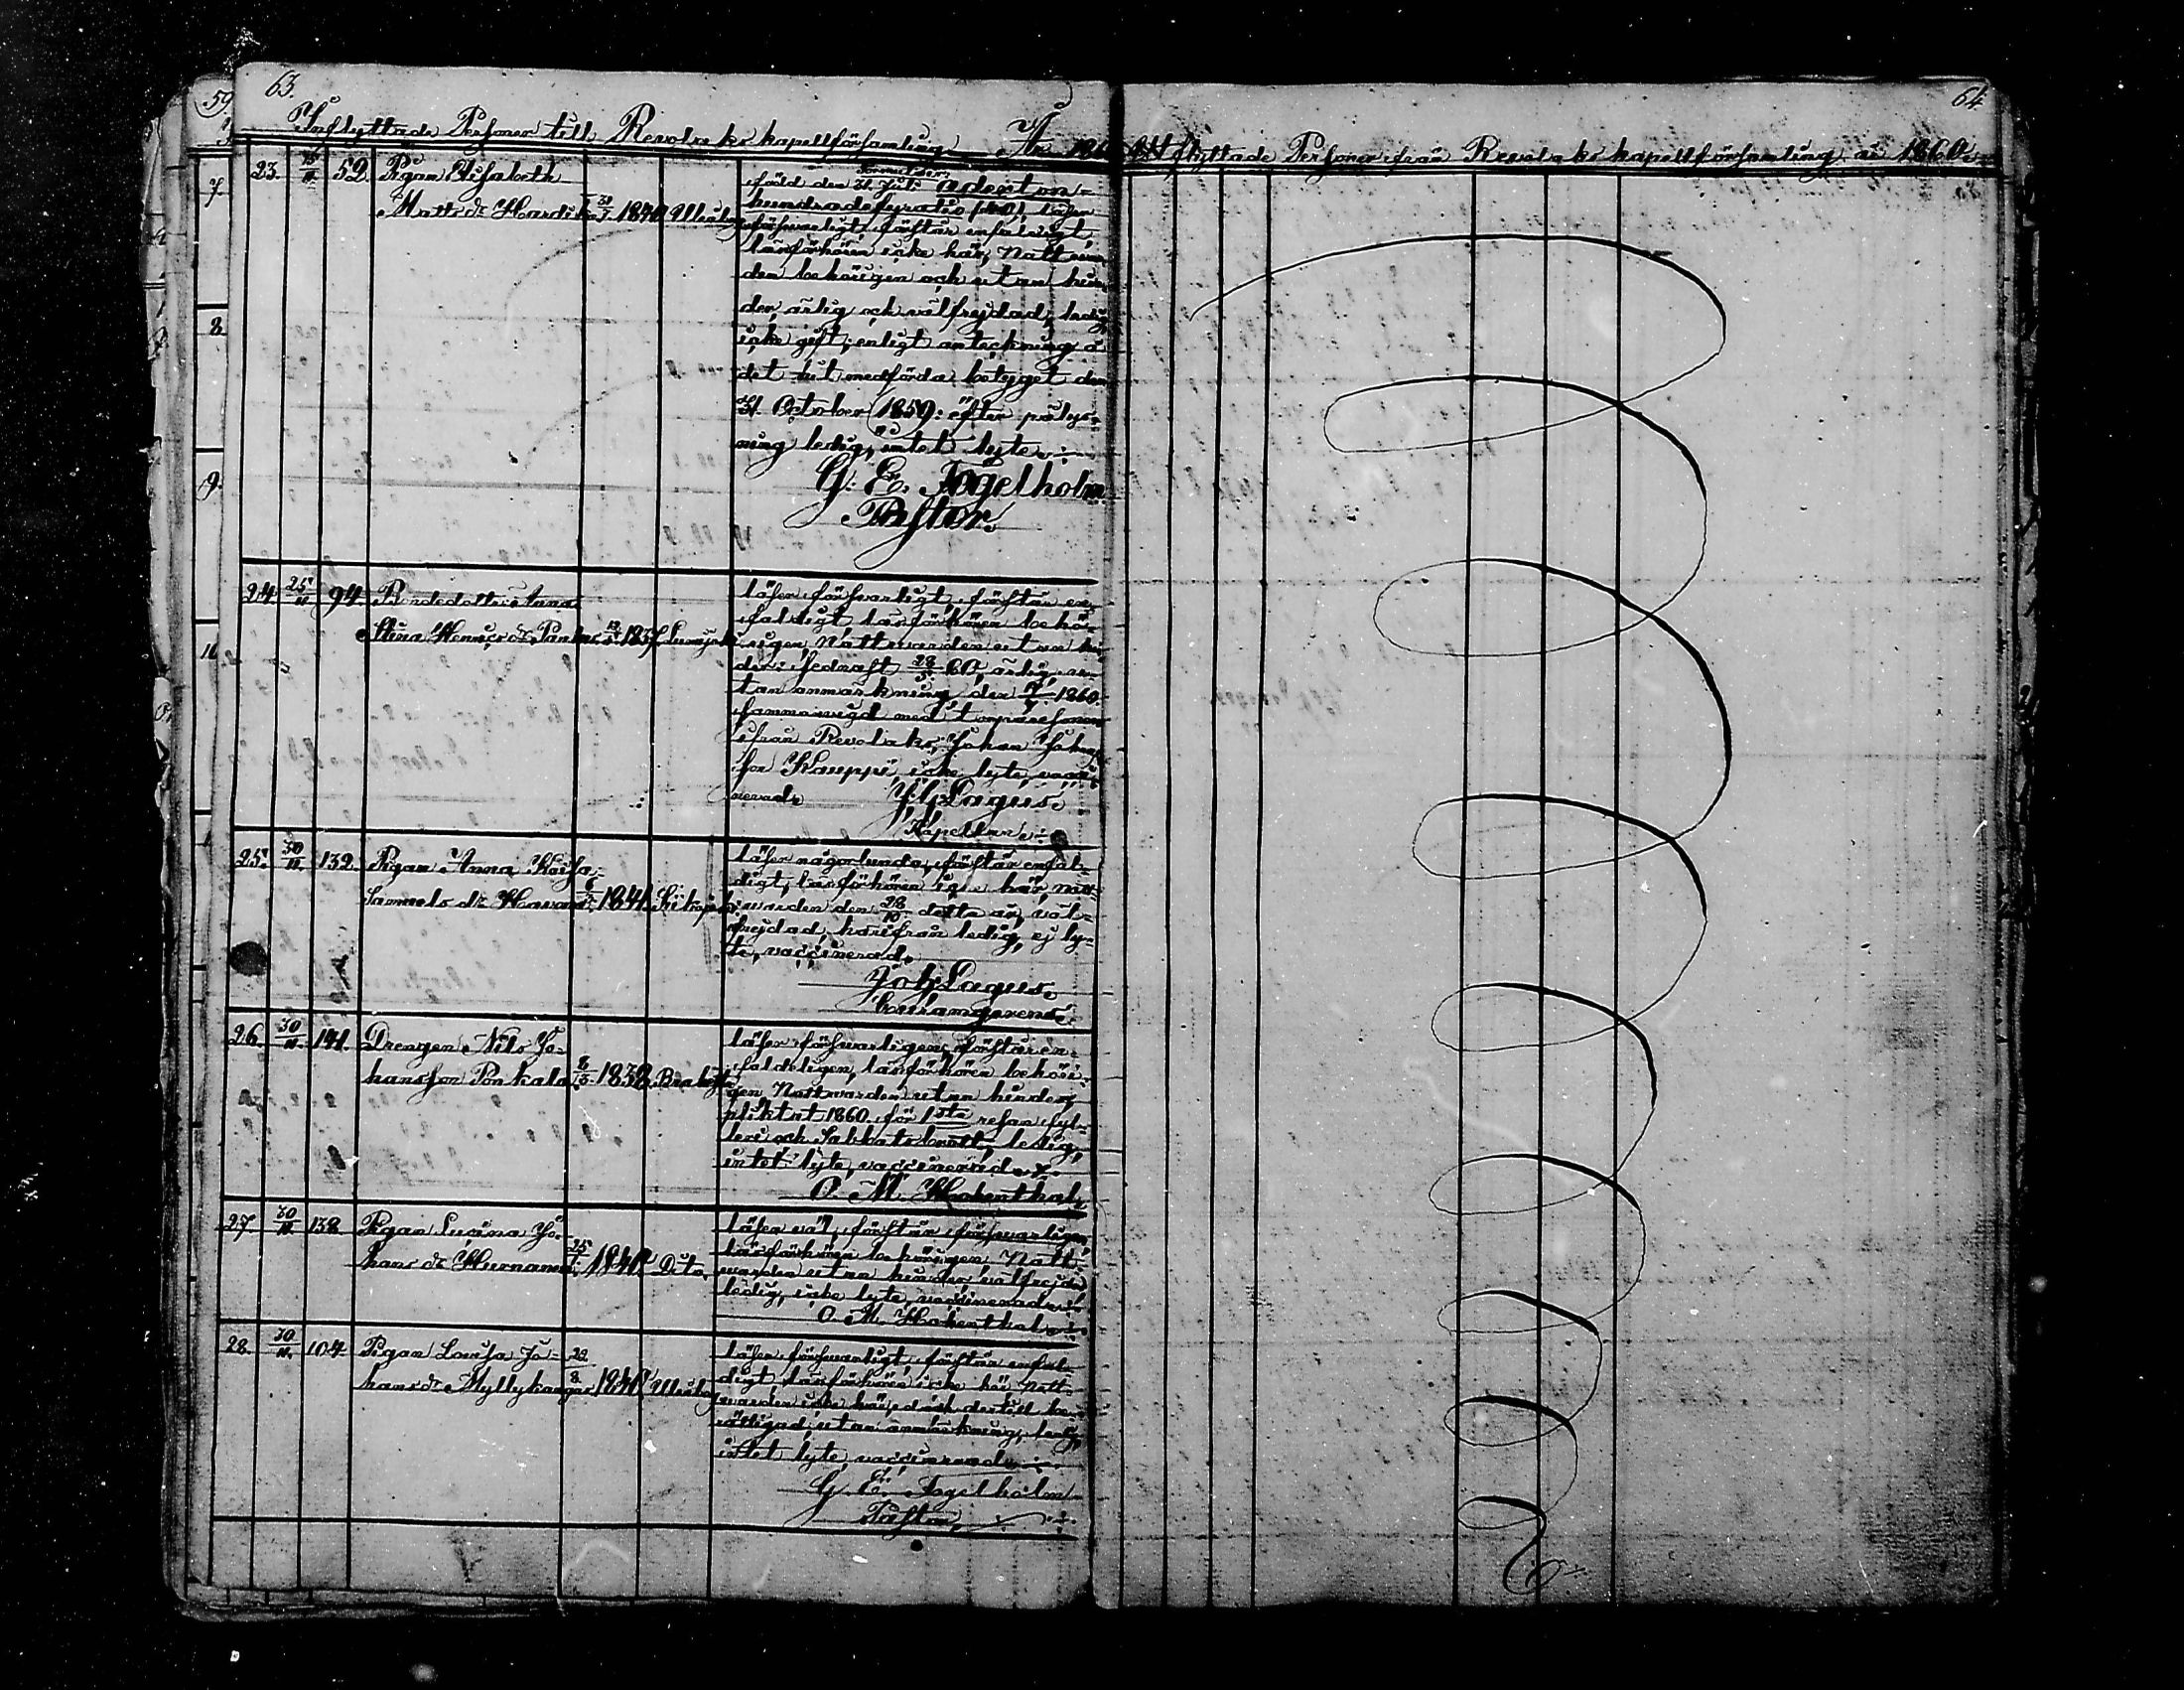 63.
Inflyttade Personer till Revolaks kapellförsamling År 186
23. 15/11. 52. Pigan Elisabeth
Matts dr Hardik 31/7 1840 Uleåborg
född den 31 Juli Aderton-
hundradefyratio (1840), läser
försvarligt, förstår enfaldigt,
läsförhören icke här, Nattvar-
den behörigen och utan hin-
der, ärlig och välfrejdad, ledig,
icke gift, enligt anteckning å
det hit medförda betyget den
31. October 1859: efter pålys-
ning ledig, intet lyte.
G. E. Fogelholm
Pastor.
24. 25/11 94. Bondedottr Anna
Stina Henricsdr 1837 Lumijoki
läser försvarligt, förstår en-
faldigt läsförhören behö-
rigen, Nattvarden utan hin-
der: sednast 28/5 60, ärlig, u-
tan anmärkning, den 1860.
sammanvigd med
ifrån Revolaks, Johan Johans
son Kauppi, icke lyte, vacci-
nerad.
Lagus.
Kapellan
25. 30/11. 132. Pigan Anna Kaisa
Samuels dr 1841. Siikajoki
läser någorlunda, förstår enfal-
digt, läsförhören icke här, natt-
varden den 28/10 detta år, väl-
frejdad, härifrån ledig, ej ly-
te, vaccinerad.
Joh. Lagus.
26. 30/11. 141. Drengen Nils Jo-
hansson Ponkala 8/3. 1838. Brahestad
läser försvarligen, förstår en-
faldeligen, läsförhören behöri-
gen Nattvarden utan hinder,
pliktat 1860 för 1sta resan fyl-
leri och Sabbatsbrott, ledig,
intet lyte, vaccinerad.
O. M. Hohenthal.
27. 30/11. 138 Pigan Lucina Jo-
hans dr Hurnanen 25/1. 1840. Dito.
läser väl, förstår försvarligen,
läsförhören behörigen, Natt-
varden utan hinder, välfrejdad
ledig, icke lyte, vaccinerad.
O. M. Hohenthal.
28. 30/11. 104. Pigan Lovisa Jo-
hans dr Myllykangas 22/8. 1840 Uleåborg
läser försvarligt, förstår enfal-
digt läsförhören icke här Natt-
varden icke här, dock dertill be-
rättigad, utan anmärkning, ledig,
intet lyte, vaccinerad.
G. E. Fogelholm
Pastor.
64
Utflyttade Personer från Revolaks kapellförsamling år 1860.